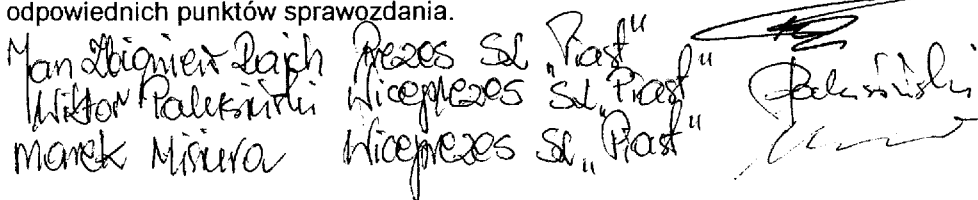 odpowiednich punktów sprawozdania.
Jan Zbigniew Rajch Prezes SL „Piast”
Wiktor Paleksiński Wiceprezes SL „Piast”
Marek Misiura Wiceprezes SL „Piast”